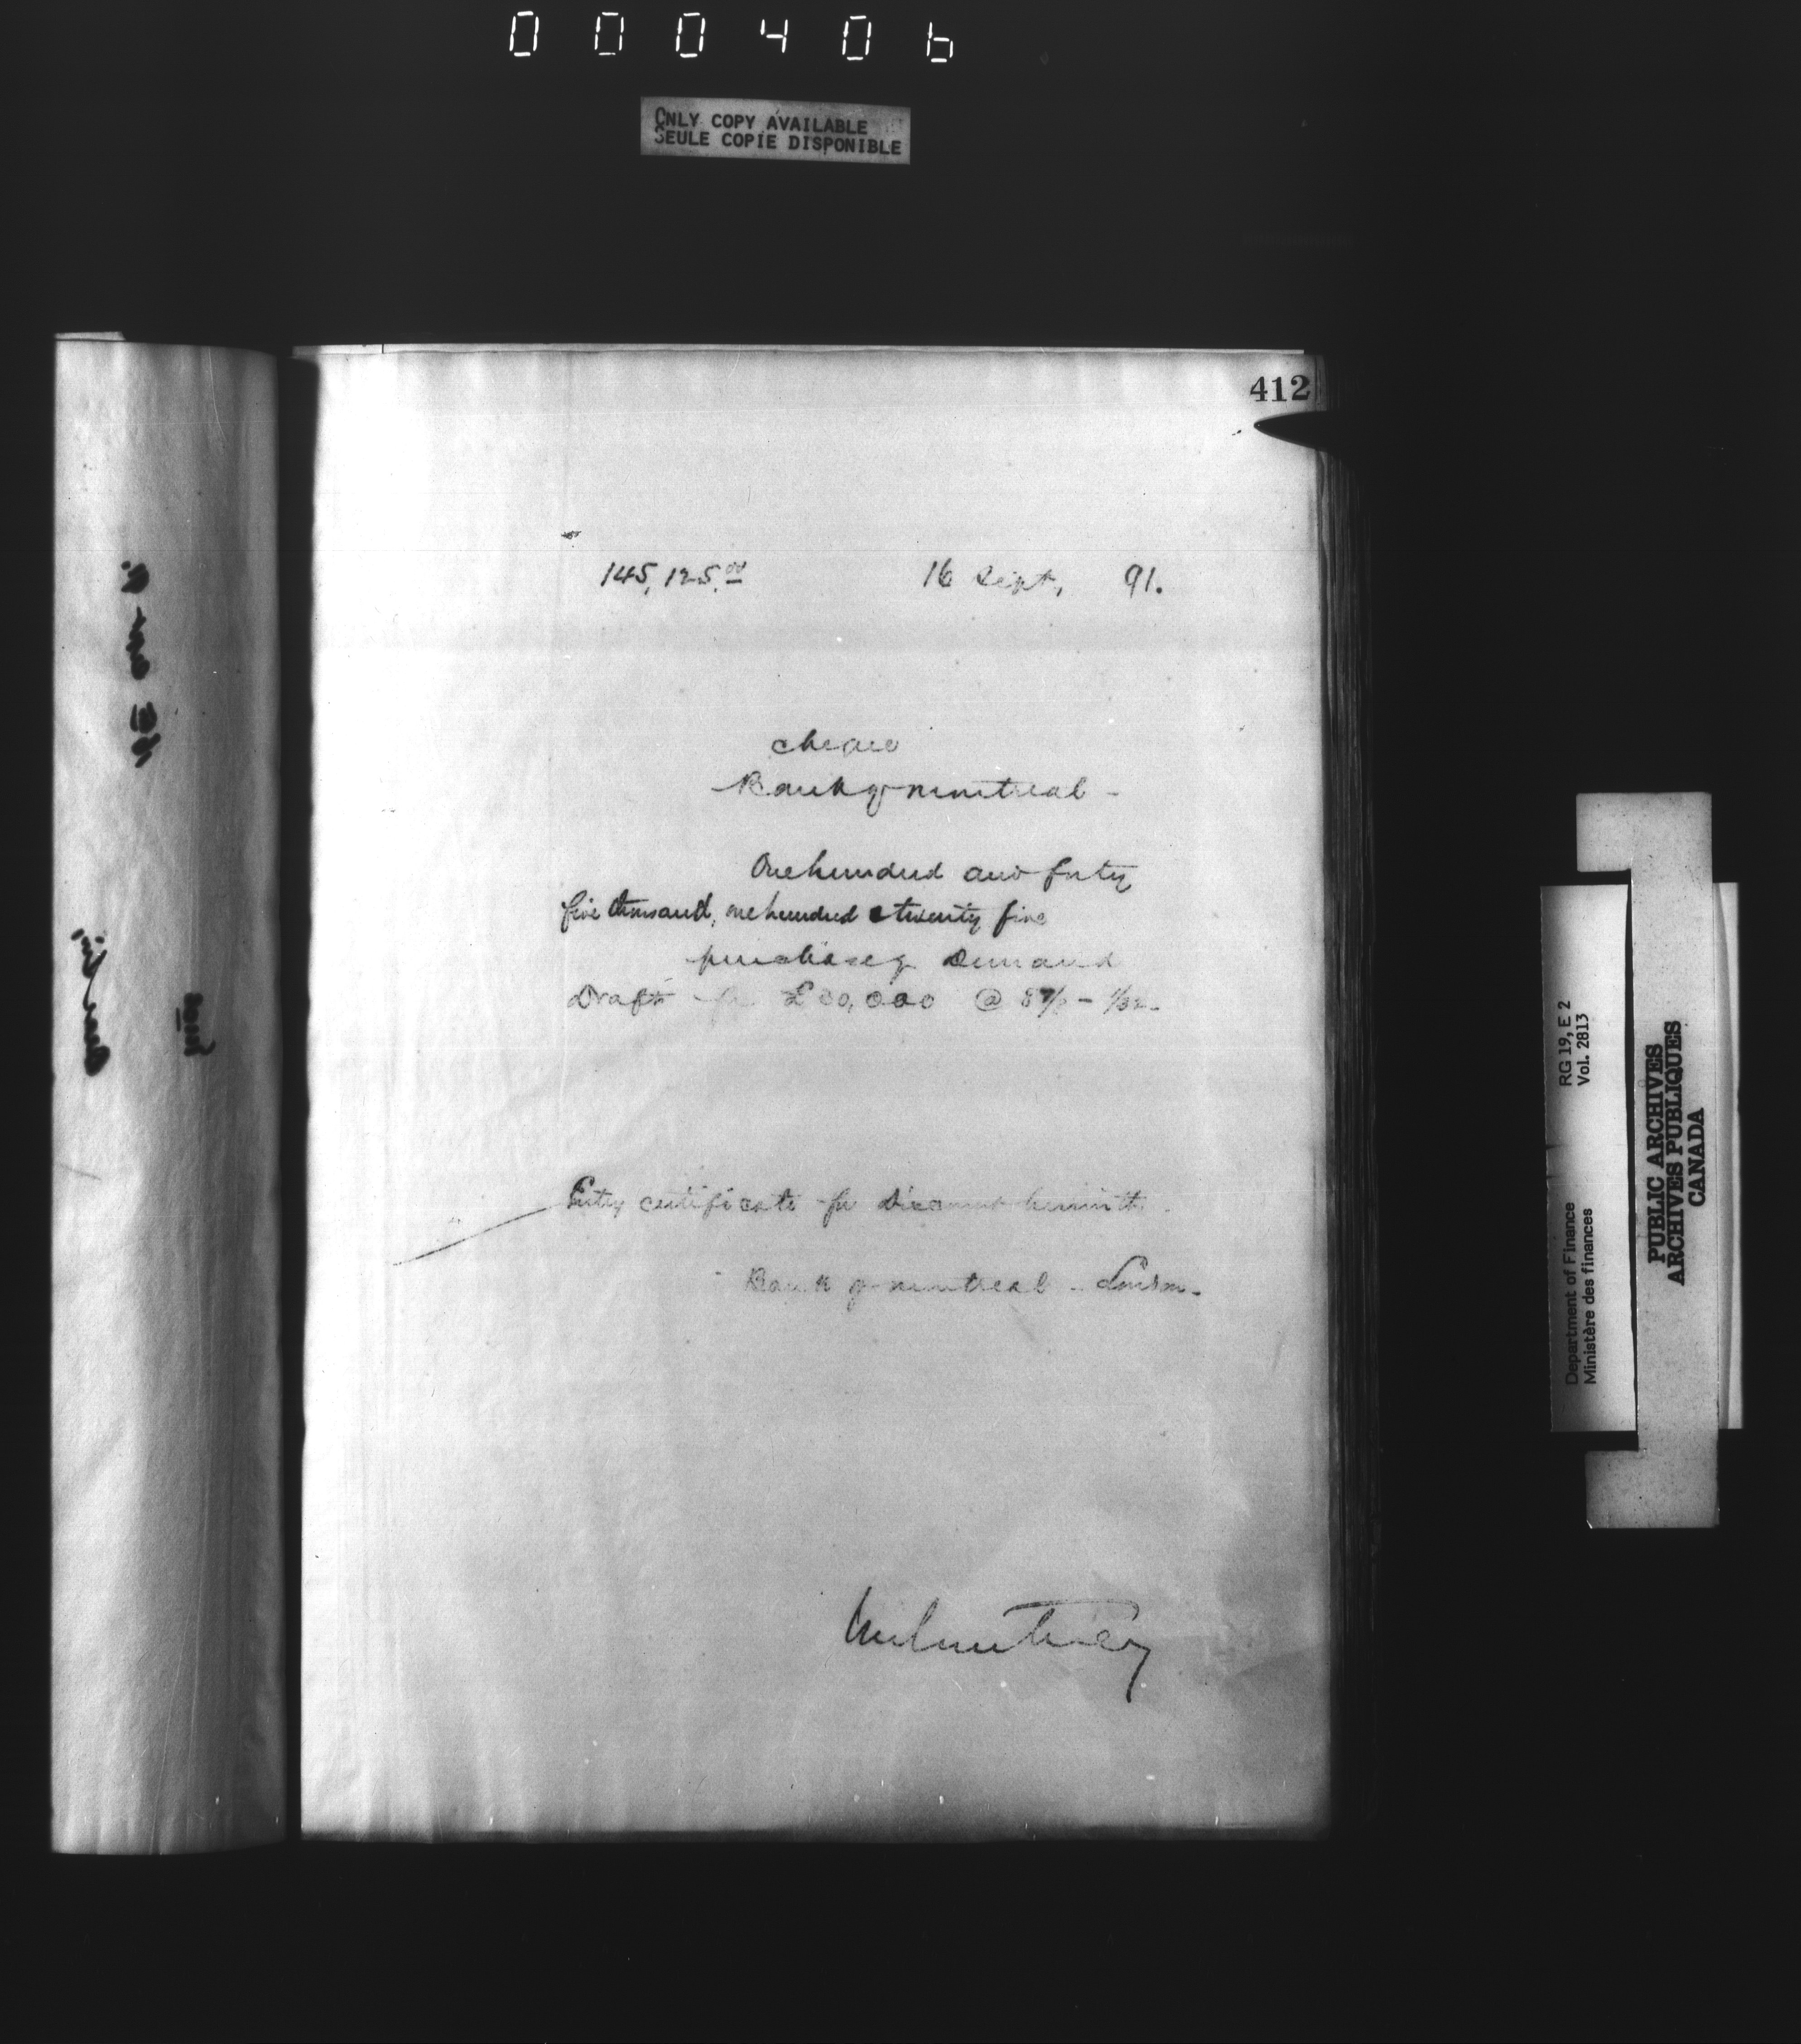 000406
ONLY COPY AVAILABLE
SEULE COPIE DISPONIBLE
412
145,125.00 16 Sept, 91.
cheque
Bank of Montreal -
One hundred and forty
five thousand, one hundred & twenty five
purchase of Demand
Draft for £30,000 @ 8 7/8 - 1/32 -
Entry certificate for Discount herewith.
Bank of Montreal - London -
RG 19, E 2
Vol. 2813
Department of Finance
Ministère des finances
PUBLIC ARCHIVES
ARCHIVES PUBLIQUES
CANADA